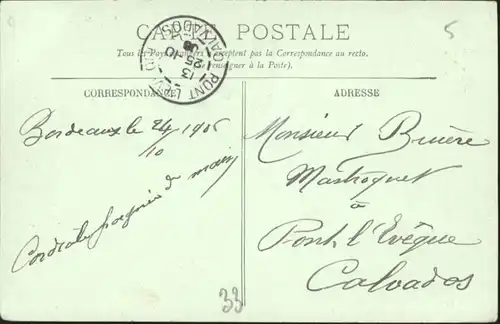 CARTE POSTALE
Tous les Pays étrangers n'acceptent pas la Correspondance au recto.
(Se renseigner à la Poste).
PONT L'EVÊQUE
CALVADOS
13
25-10
06
5
CORRESPONDANCE
ADRESSE
Bordeaux le 24/10 1906
Cordiale poignée de main
Monsieur Bruère
Mastroquet
à
Pont l'Evêque
Calvados
33